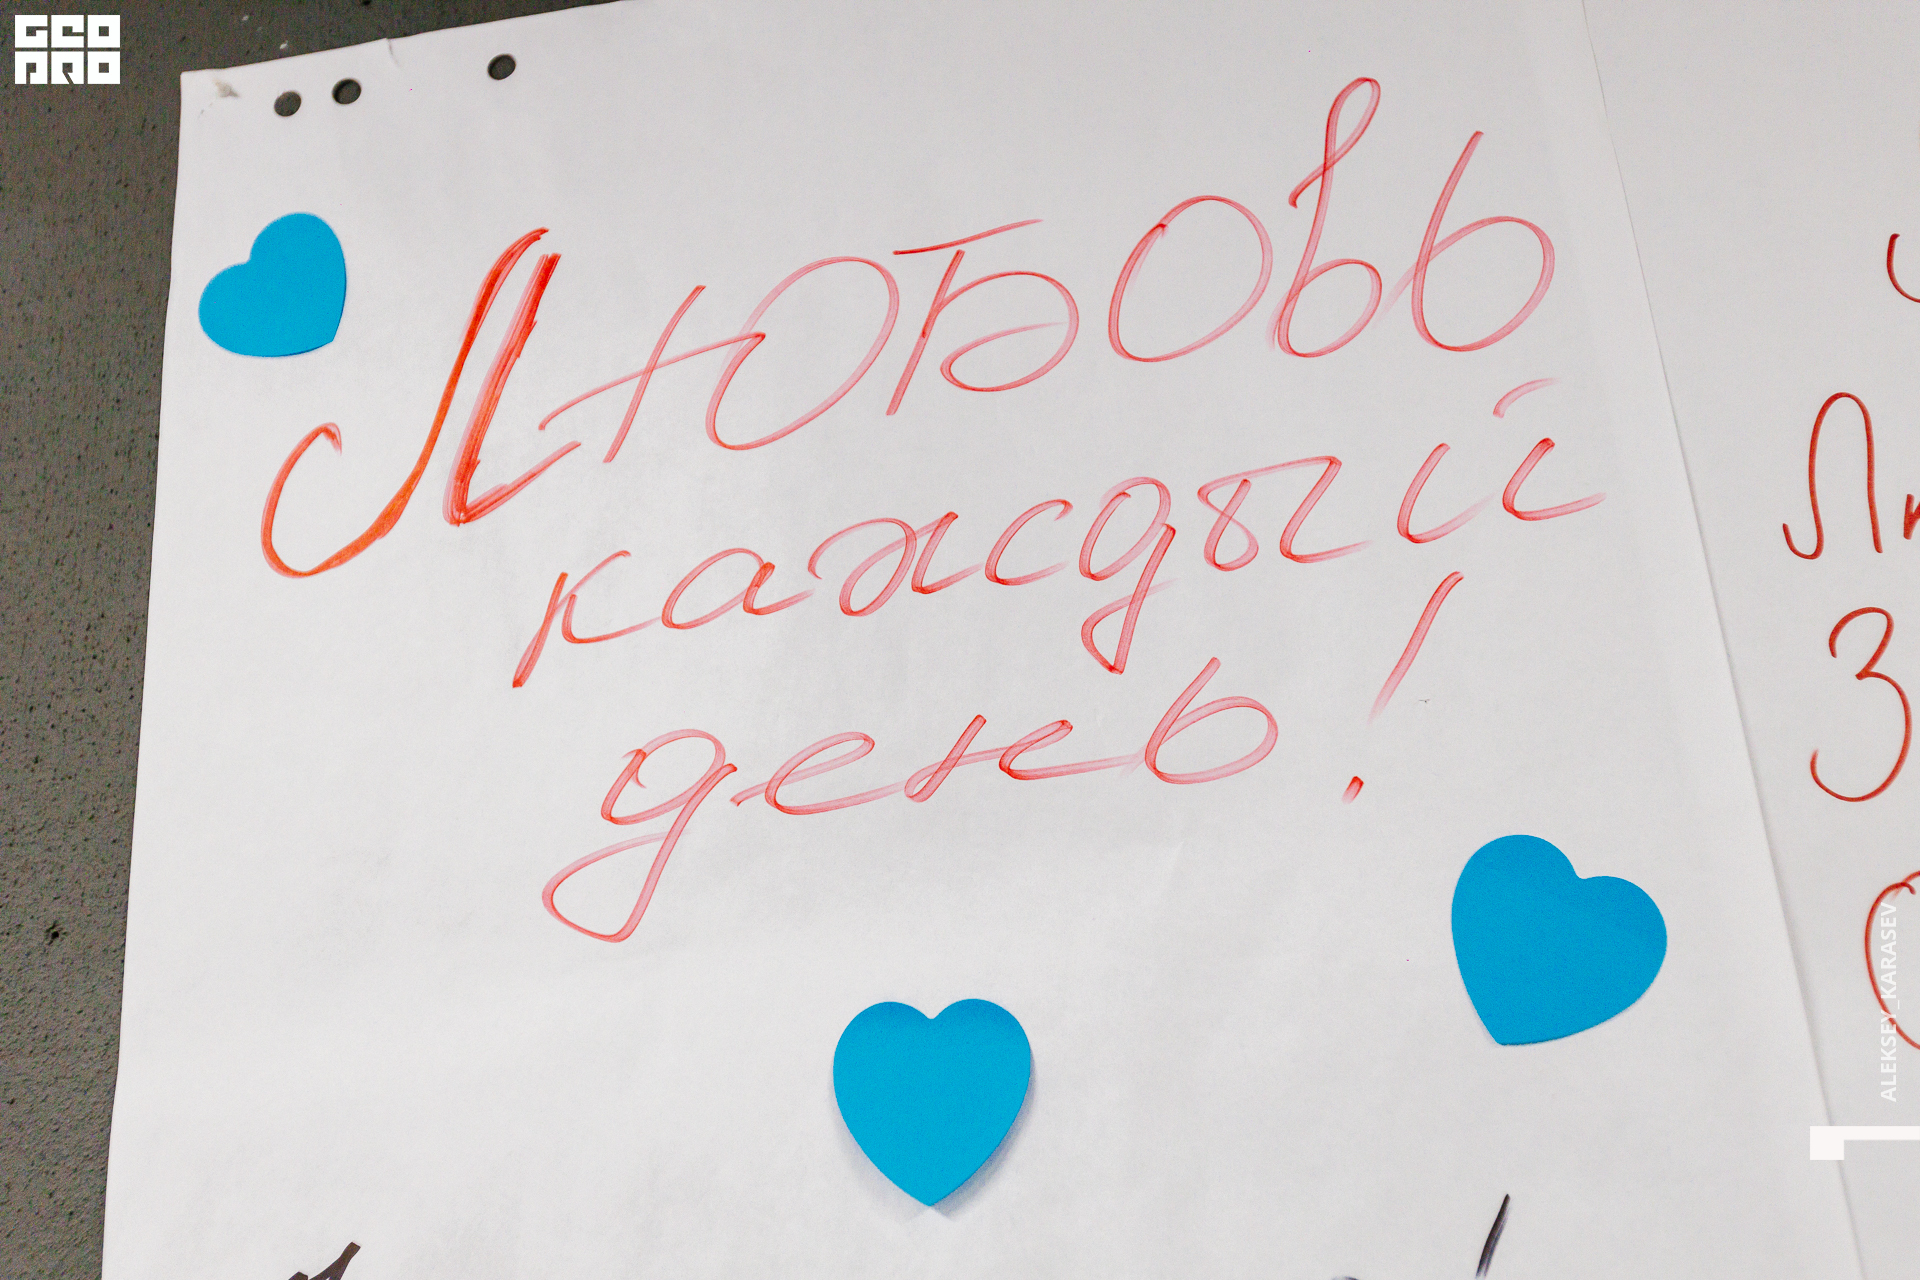 GEO
PRO
Любовь
каждый
день!
З
ALEKSEY_KARASEV